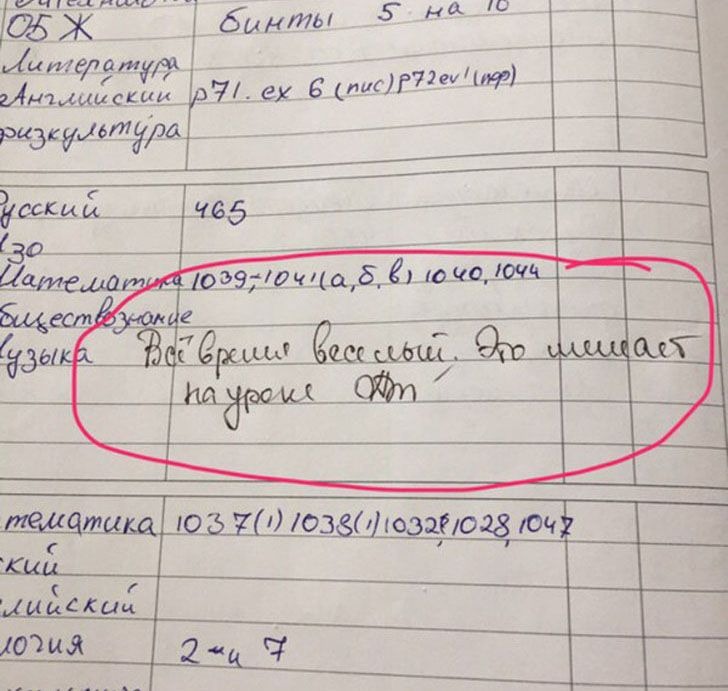 ОБЖ бинты 5 на 10
Литература
Английский р71. ex 6 (пис) р72 ex1 (пер)
физкультура
русский 465
ИЗО
Математика 1039, 1041(а,б,в) 1040, 1044
обществознание
музыка Всё время веселый. Это мешает
на уроке
тематика 1037(1) 1038(1) 1032, 1028, 1047
ский
лийский
логия